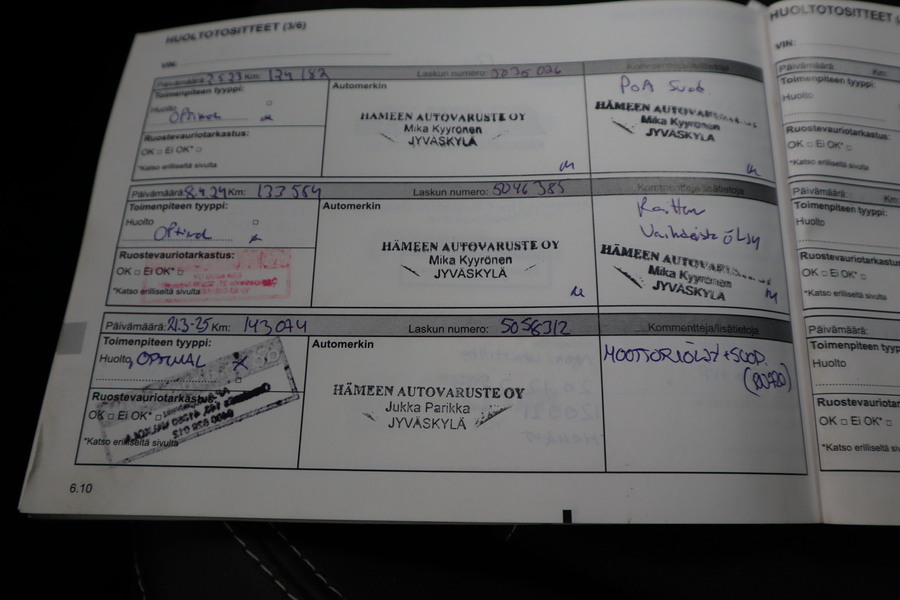 HUOLTOTOSITTEET (3/6)
VIN:
Päivämäärä: 2.5.23 Km: 124 182 Laskun numero: Kommentteja/lisätietoja
Toimenpiteen tyyppi:
Huolto
Optimal
Ruostevauriotarkastus:
OK □ Ei OK* □
*Katso erilliseltä sivulta
Automerkin
HÄMEEN AUTOVARUSTE OY
Mika Kyyrönen
JYVÄSKYLÄ
PöA Suod.
HÄMEEN AUTOVARUSTE OY
Mika Kyyrönen
JYVÄSKYLÄ
Päivämäärä: 8.4.24 Km: 133 564 Laskun numero: 5046385 Kommentteja/lisätietoja
Toimenpiteen tyyppi:
Huolto
Optimal
Ruostevauriotarkastus:
OK □ Ei OK* □
*Katso erilliseltä sivulta
Automerkin
HÄMEEN AUTOVARUSTE OY
Mika Kyyrönen
JYVÄSKYLÄ
Vaihteisto öljy
HÄMEEN AUTOVARUSTE OY
Mika Kyyrönen
JYVÄSKYLÄ
Päivämäärä: 21.3-25 Km: 143 074 Laskun numero: 5058312 Kommentteja/lisätietoja
Toimenpiteen tyyppi:
Huolto OPTIMAL X
Ruostevauriotarkastus:
OK □ Ei OK* □
*Katso erilliseltä sivulta
Automerkin
HÄMEEN AUTOVARUSTE OY
Jukka Parikka
JYVÄSKYLÄ
MOOTTORIÖLJY + SUOD.
6.10
HUOLTOTOSITTEET
VIN:
Päivämäärä: Km:
Toimenpiteen tyyppi:
Huolto
Ruostevauriotar
OK □ Ei OK* □
*Katso erilliseltä sivulta
Päivämäärä: Km
Toimenpiteen tyyp
Huolto
Ruostevauriota
OK □ Ei OK* □
*Katso erilliseltä siv
Päivämäärä:
Toimenpiteen ty
Huolto
Ruostevaurio
OK □ Ei OK* □
*Katso erilliseltä